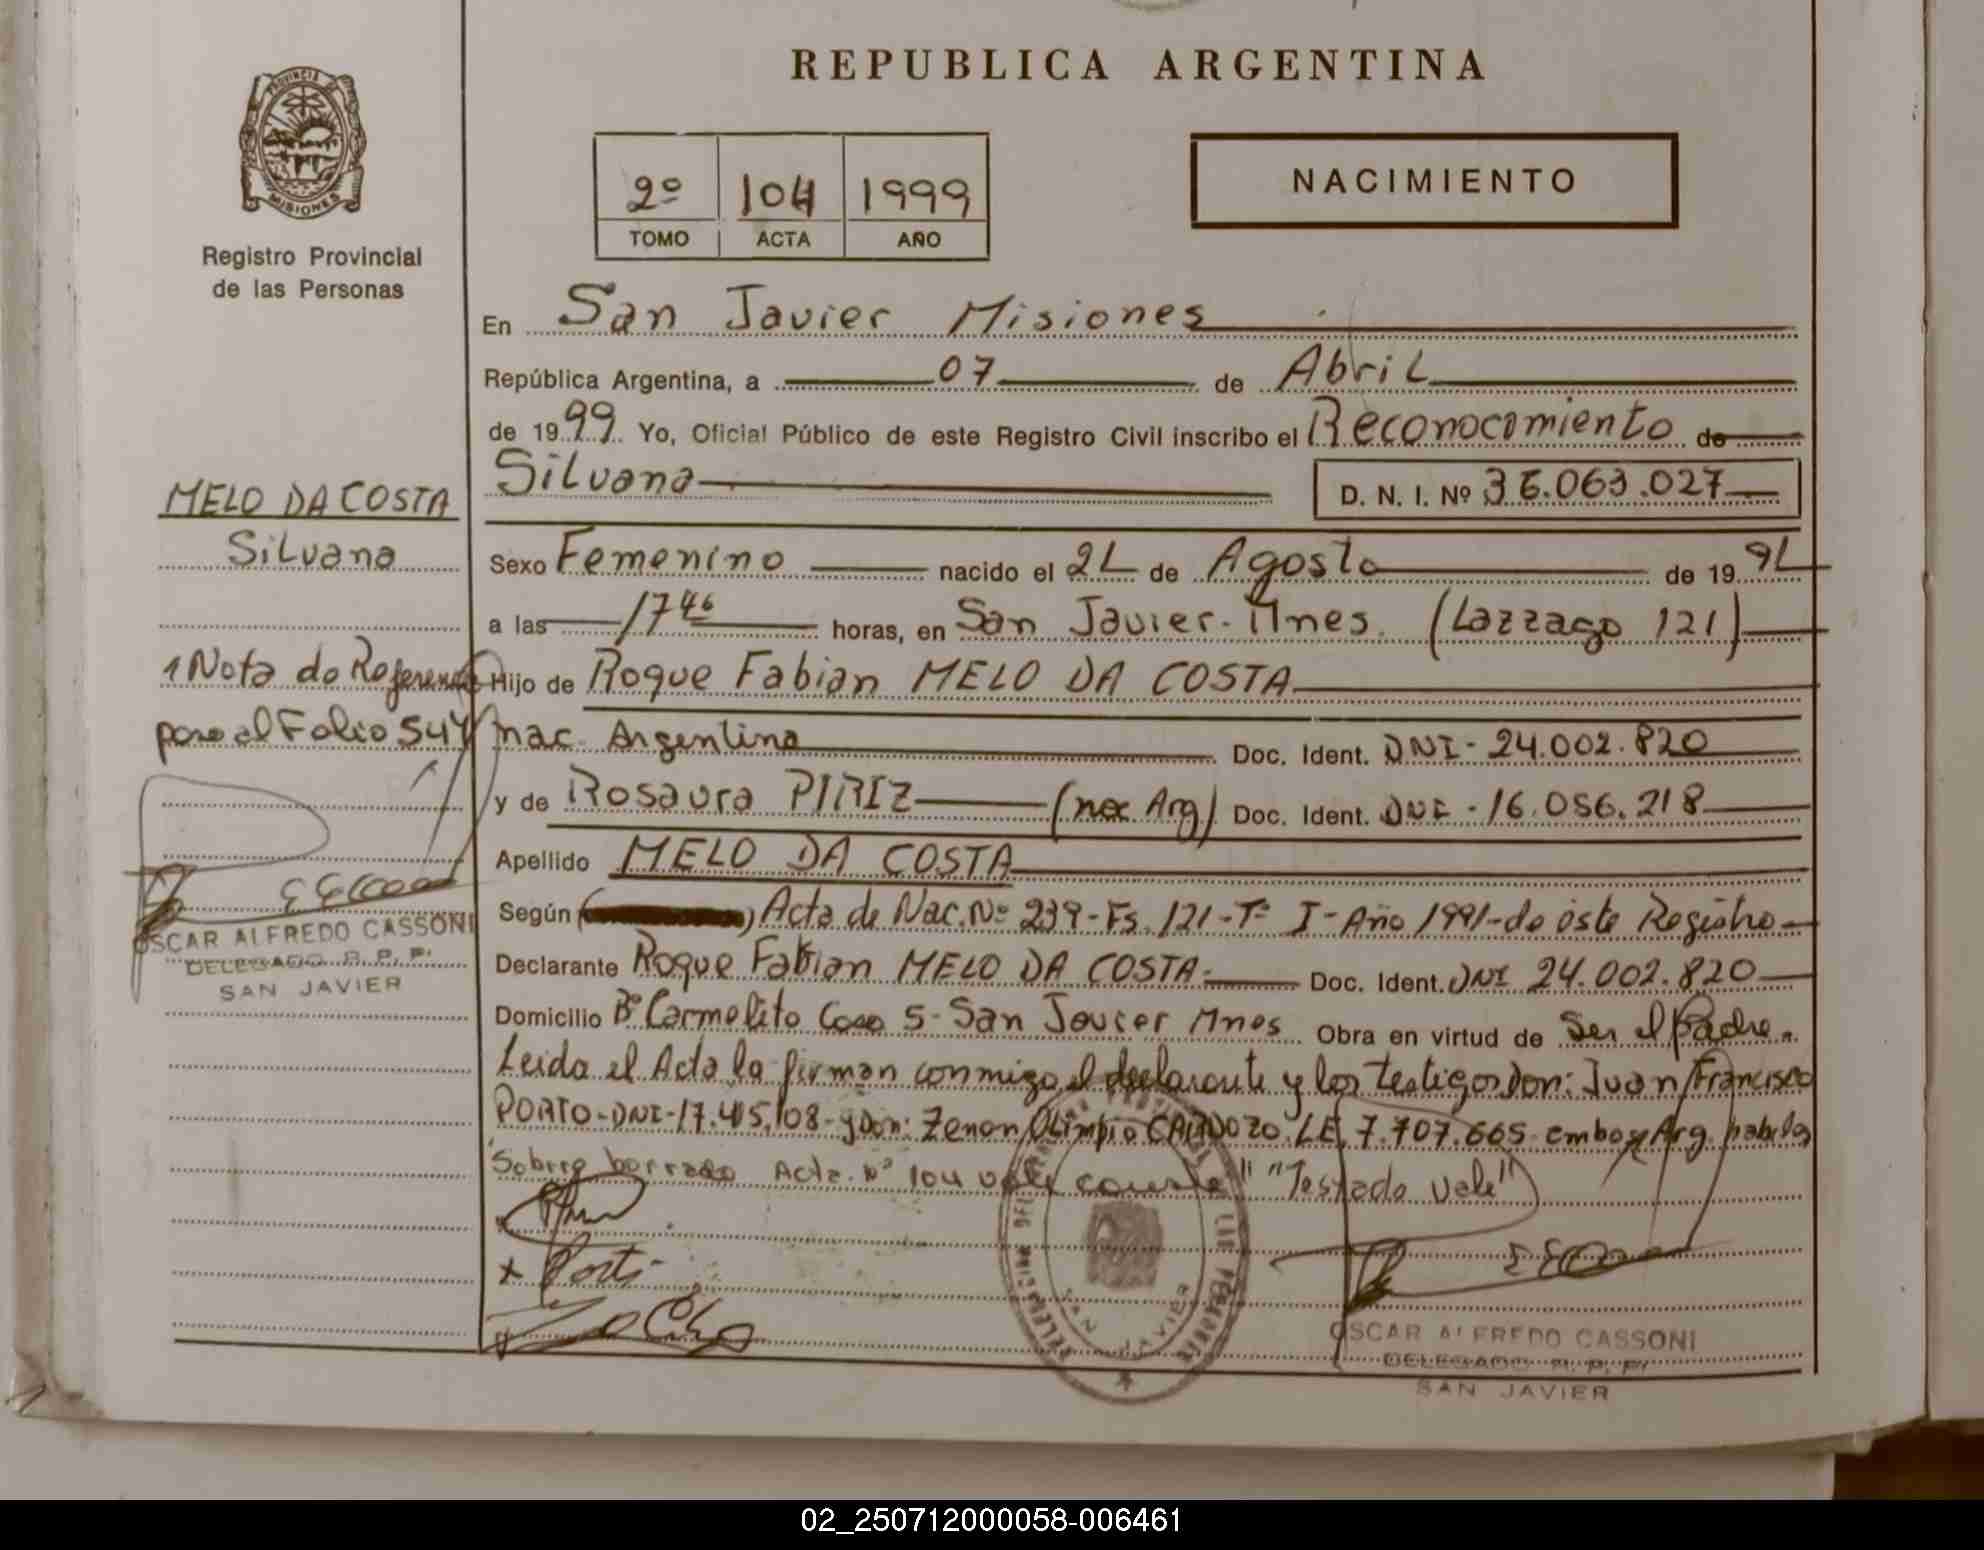 REPUBLICA ARGENTINA
PROVINCIA DE MISIONES
Registro Provincial
de las Personas
2º 104 1999
TOMO ACTA AÑO
NACIMIENTO
En San Javier Misiones
República Argentina, a 07 de Abril
de 1999 Yo, Oficial Público de este Registro Civil inscribo el Reconocimiento de
Silvana D. N. I. Nº 36.063.027
MELO DA COSTA
Silvana
Sexo Femenino nacido el 21 de Agosto de 1991
a las 17 46 horas, en San Javier - Mnes. (Lazzago 121)
1 Nota de Referencia
pase al Folio 544
Hijo de Roque Fabian MELO DA COSTA
nac. Argentina Doc. Ident. DNI - 24.002.820
y de Rosaura PIRIZ (nac Arg) Doc. Ident. DNI - 16.056.218
Apellido MELO DA COSTA
Según ( ) Acta de Nac. Nº 239 - Fs. 121 - Tº I - Año 1991 - de este Registro
Declarante Roque Fabian MELO DA COSTA Doc. Ident. DNI 24.002.820
Domicilio Bº Carmelito Casa 5 - San Javier Mnes Obra en virtud de Ser el Padre.
Leida el Acta la firman conmigo el declarante y los testigos Don: Juan Francisco
PORTO - DNI - 17.415.108 - y Don: Zenon Olimpio CARDOZO. LE. 7.707.665 - embos Arg. habiles
"Sobre borrado Acta. Nº 104 vale conste" "Testado vale"
OSCAR ALFREDO CASSONI
DELEGADO R. P. P.
SAN JAVIER
SAN JAVIER
OSCAR ALFREDO CASSONI
DELEGADO R. P. P.
SAN JAVIER
02_250712000058-006461